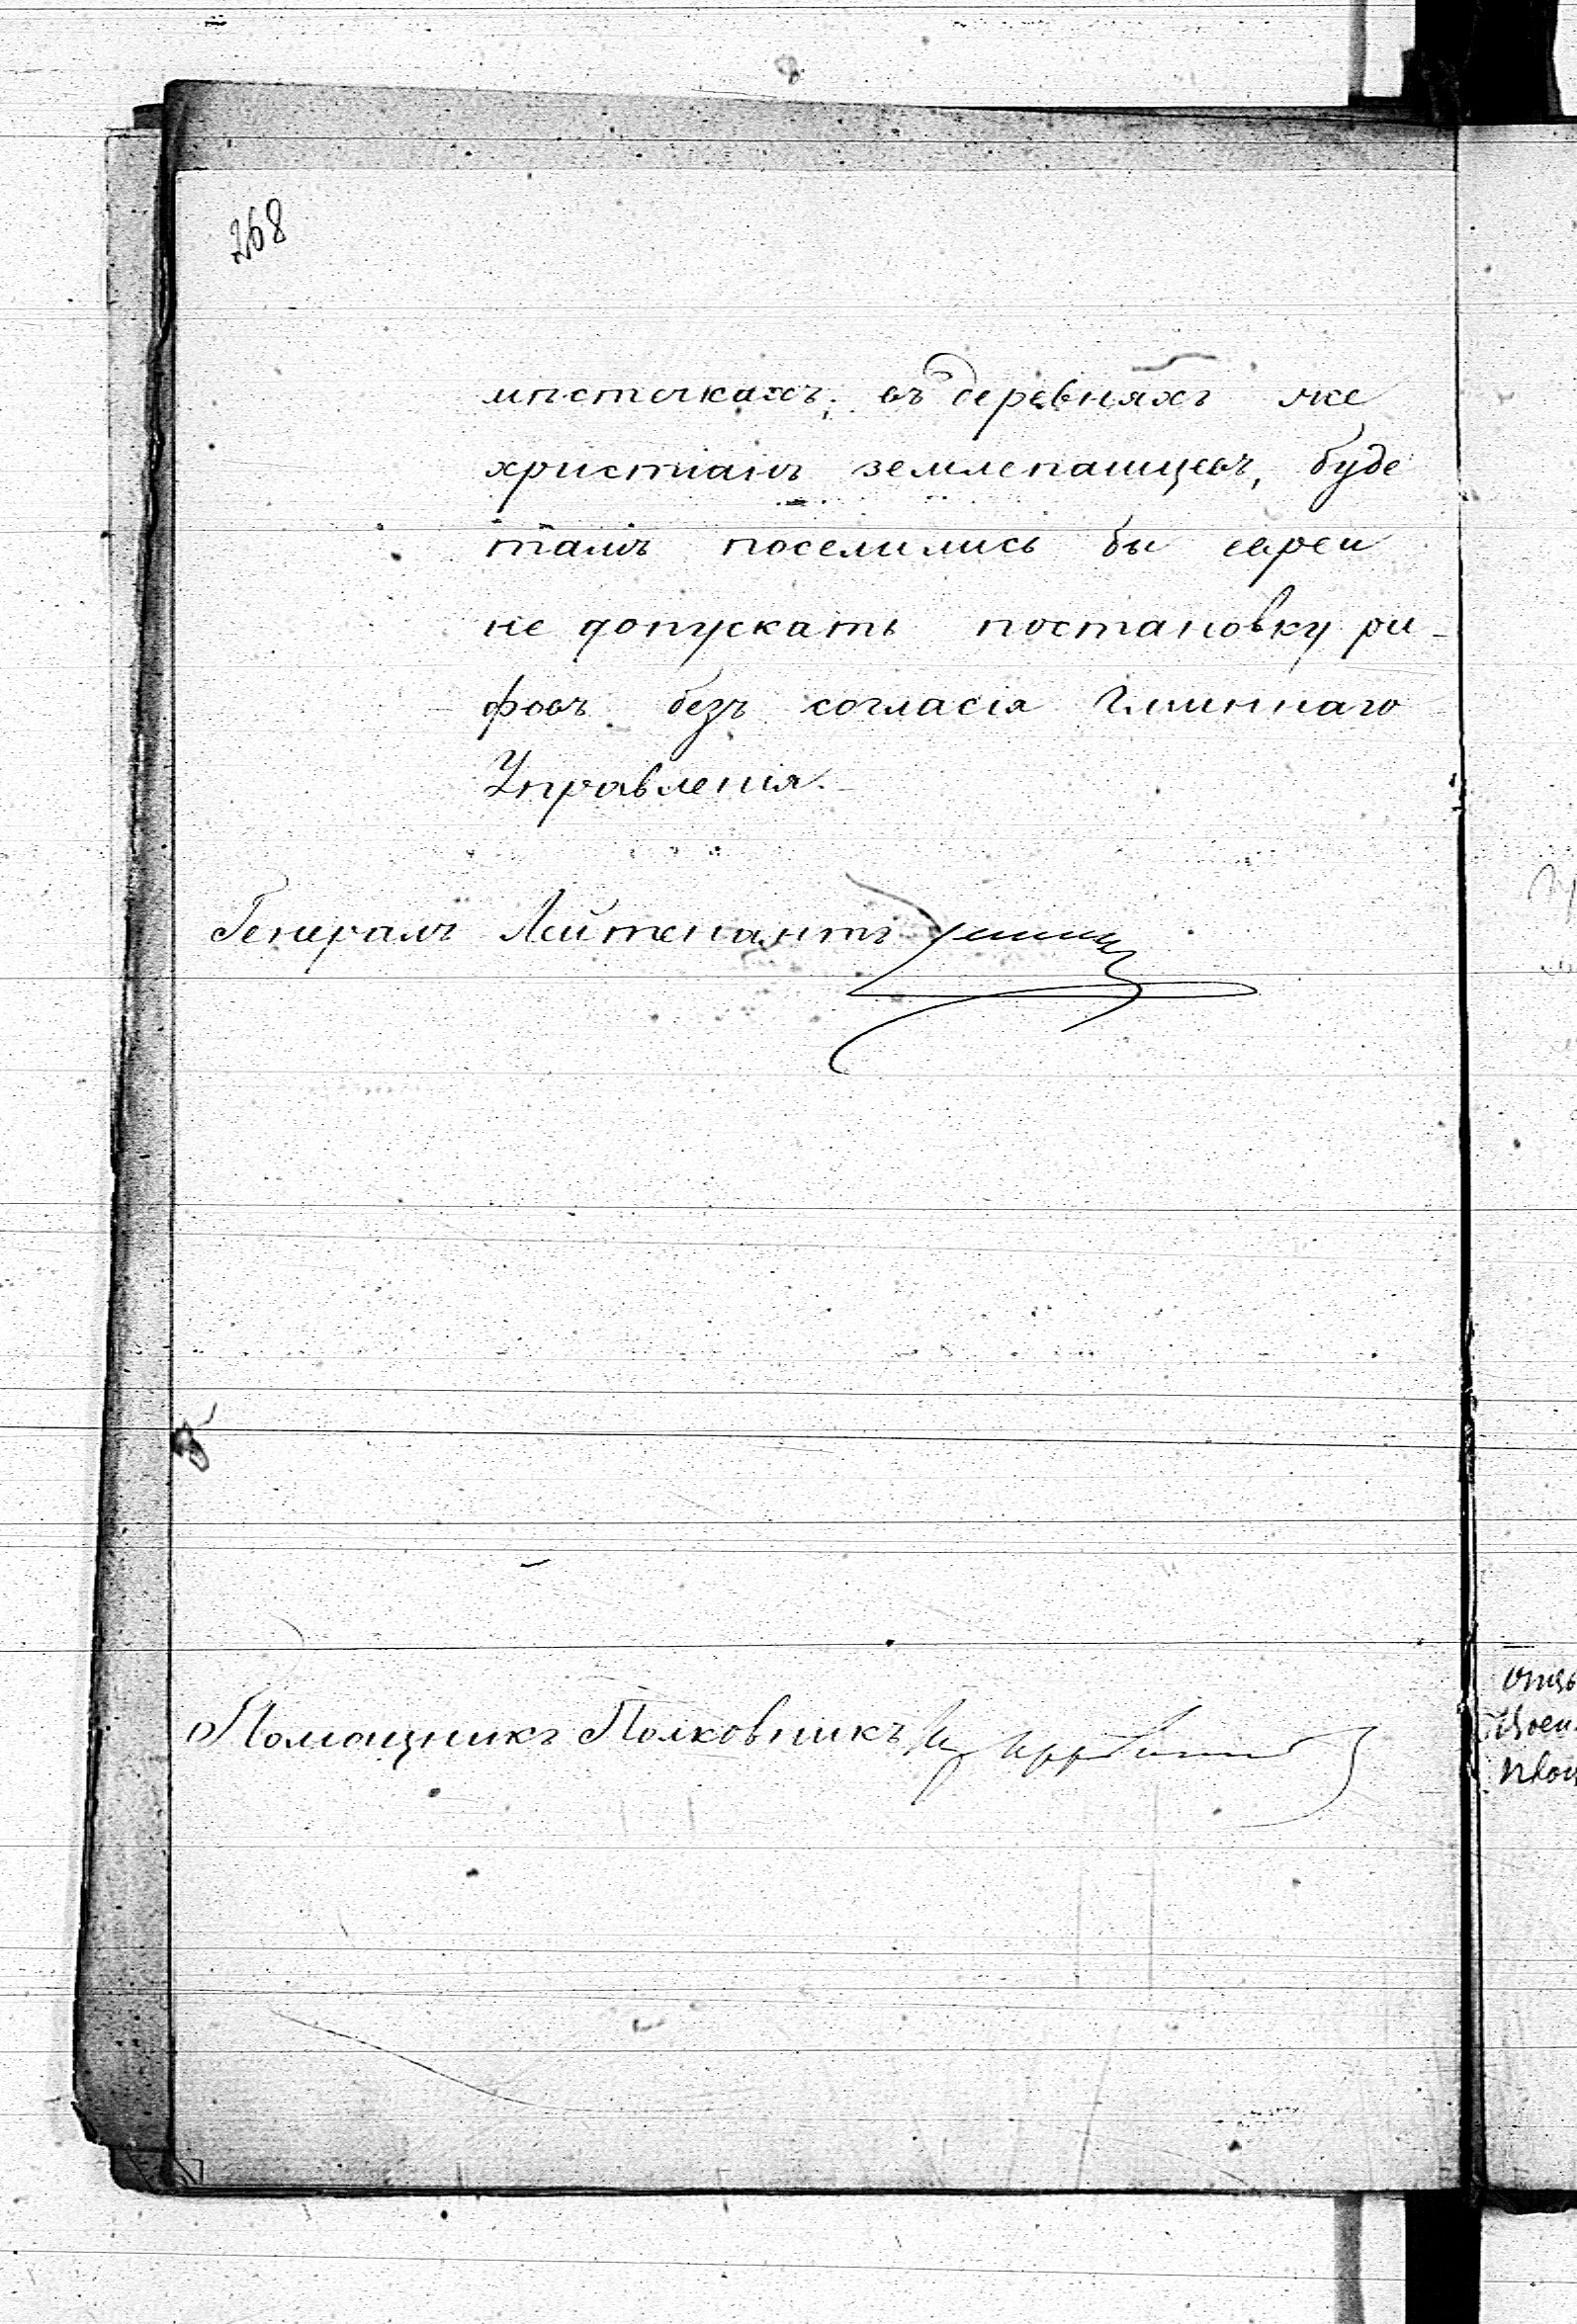 268
мѣстечкахъ; въ деревняхъ же
христіанъ землепашцевъ, буде
тамъ поселились бы евреи
не допускать постановку ри-
фовъ безъ согласія Гминнаго
Управленія.
Генералъ Лейтенантъ
Помощникъ Полковникъ